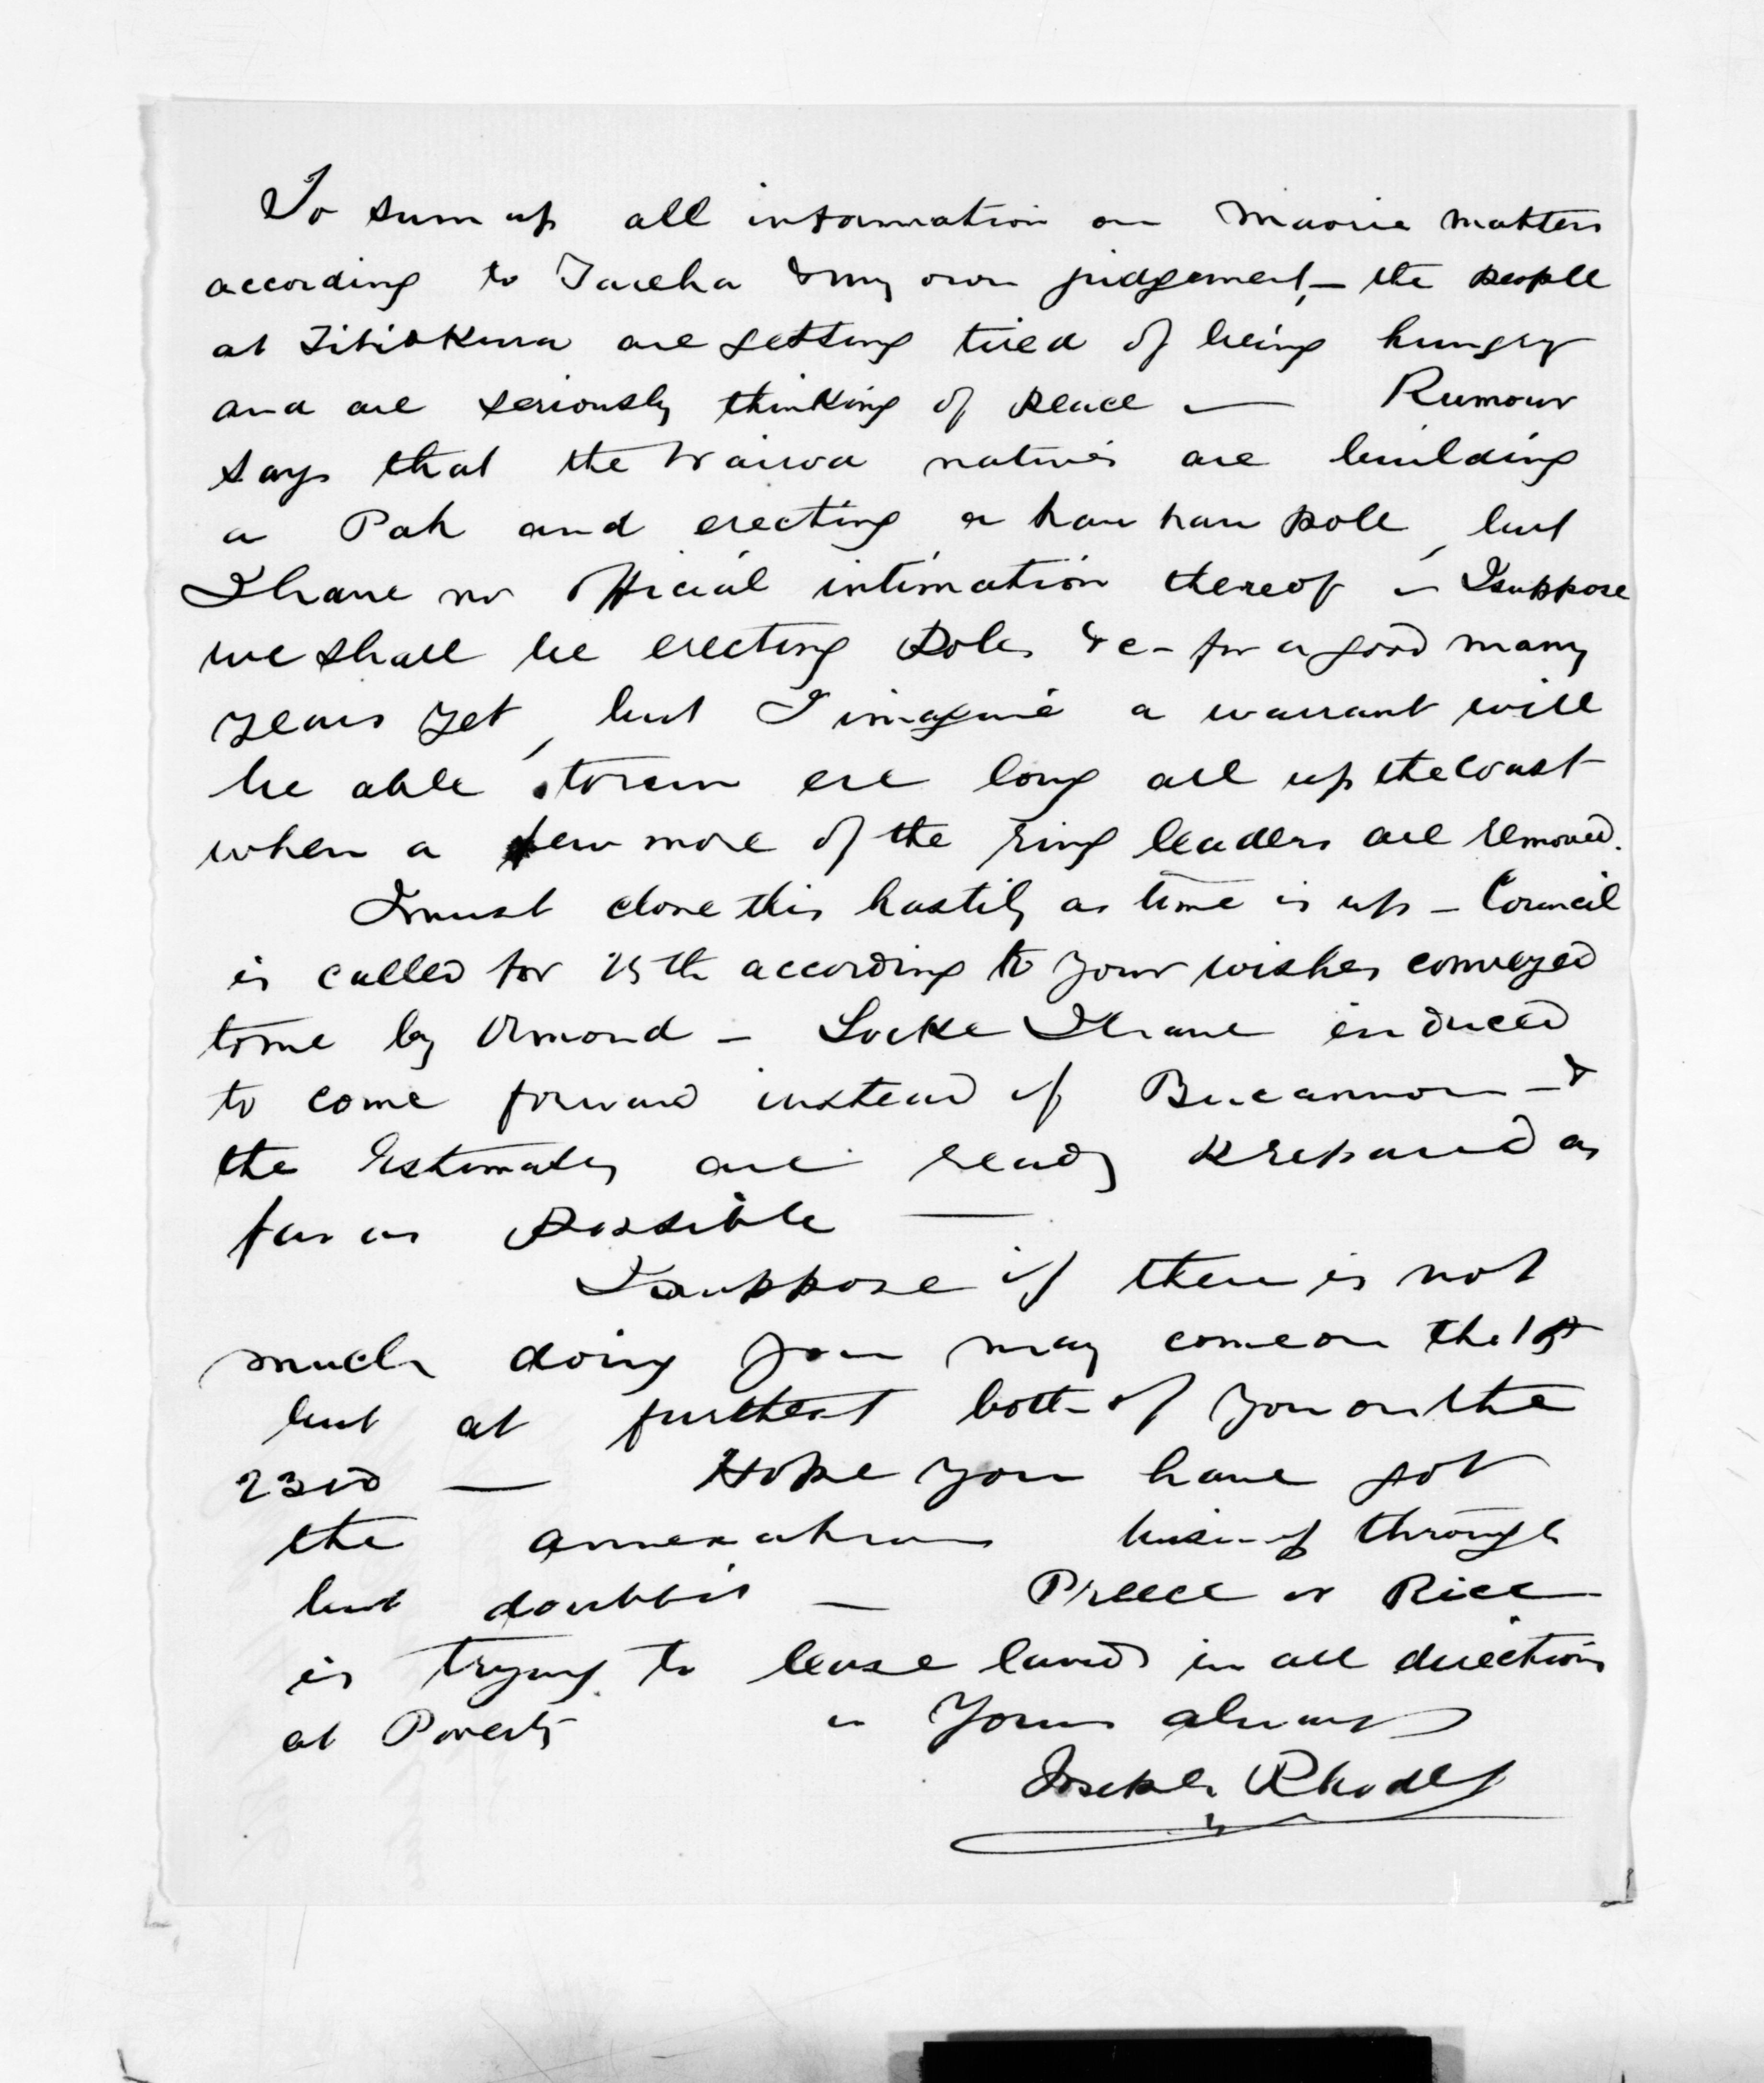 To sum up all information on Maorie matters
according to Tareha & my own judgement, — the people
at Titiokura are getting tired of being hungry
and are seriously thinking of peace — Rumour
says that the Wairoa natives are building
a Pah and erecting a hau hau pole, but
I have no official intimation thereof — I suppose
we shall be erecting Poles &c - for a good many
years yet, but I imagine a warrant will
be able to run ere long all up the Coast
when a few more of the ring leaders are removed.
I must close this hastily as time is up — Council
is called for 25th according to your wishes conveyed
to me by Ormond — Locke I have induced
to come forward instead of Bucannon — &
the Estimates are ready prepared as
far as possible —
I suppose if there is not
much doing you may come on the 15th
but at furthest both of you on the
23rd — Hope you have got
the annexation business through
but doubt it — Preece or Rice
is trying to lease lands in all directions
at Poverty — Yours always
Joseph Rhodes